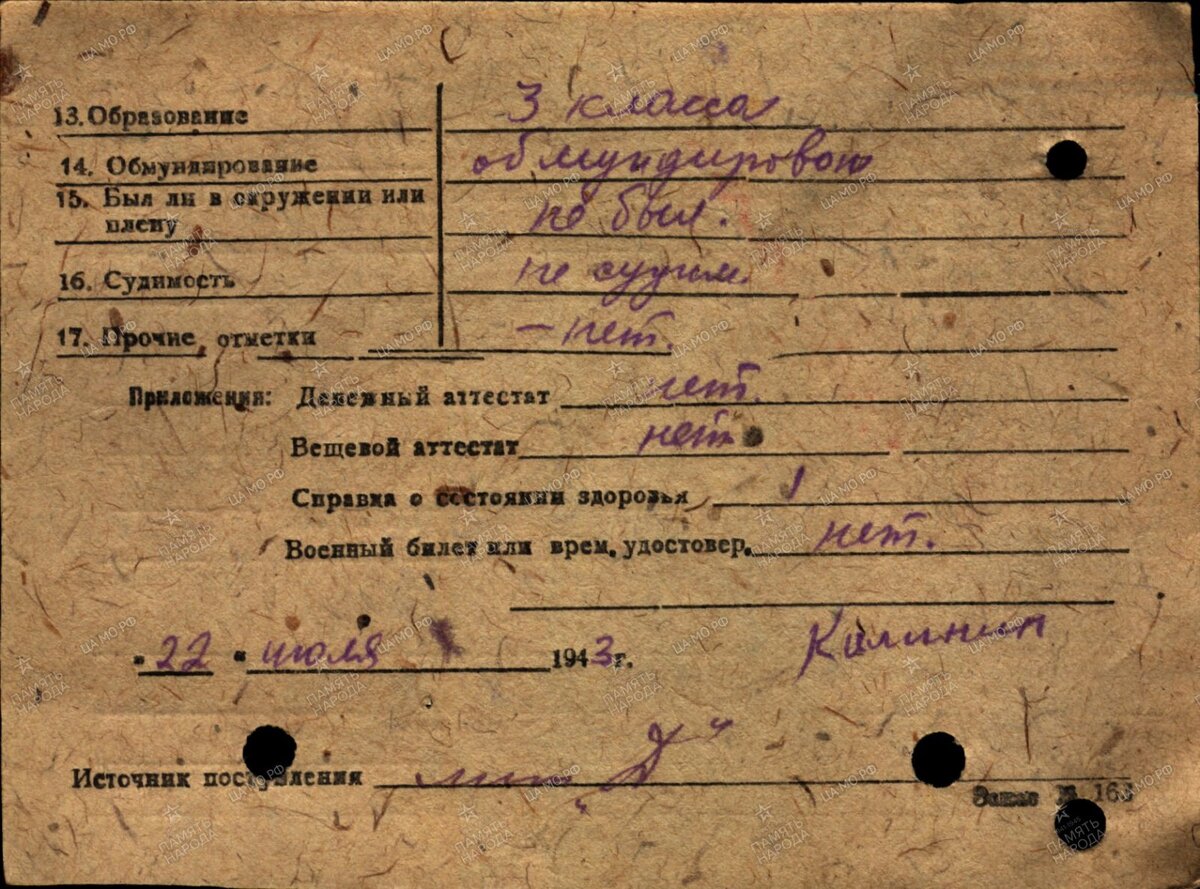 13. Образование 3 класса
14. Обмундирование обмундирован
15. Был ли в окружении или
плену не был.
16. Судимость не судим.
17. Прочие отметки – нет.
Приложения: Денежный аттестат нет.
Вещевой аттестат нет
Справка о состоянии здоровья 1
Военный билет или врем. удостовер. нет.
"22" июля 1943 г. Калинин
Источник поступления лит "Д"
Заказ № 163
ПАМЯТЬ НАРОДА
ЦАМО.РФ